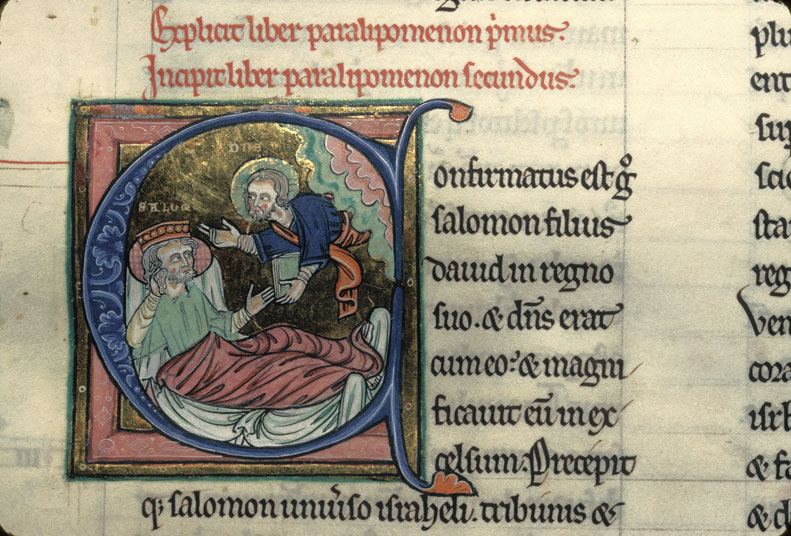 Explicit liber paralipomenon p̄mus.
Incipit liber paralipomenon secundus.
DN̄S
SALOM̄
Confirmatus est gͦ
salomon filius
dauid in regno
suo. & dn̄s erat
cum eo. & magni
ficauit eū in ex
celsum. Precepit
q; salomon uniu͛so israheli. tribunis &
plu
ent
sup
scio
sta
reg
Ven
cora
isrl
& fa
& d